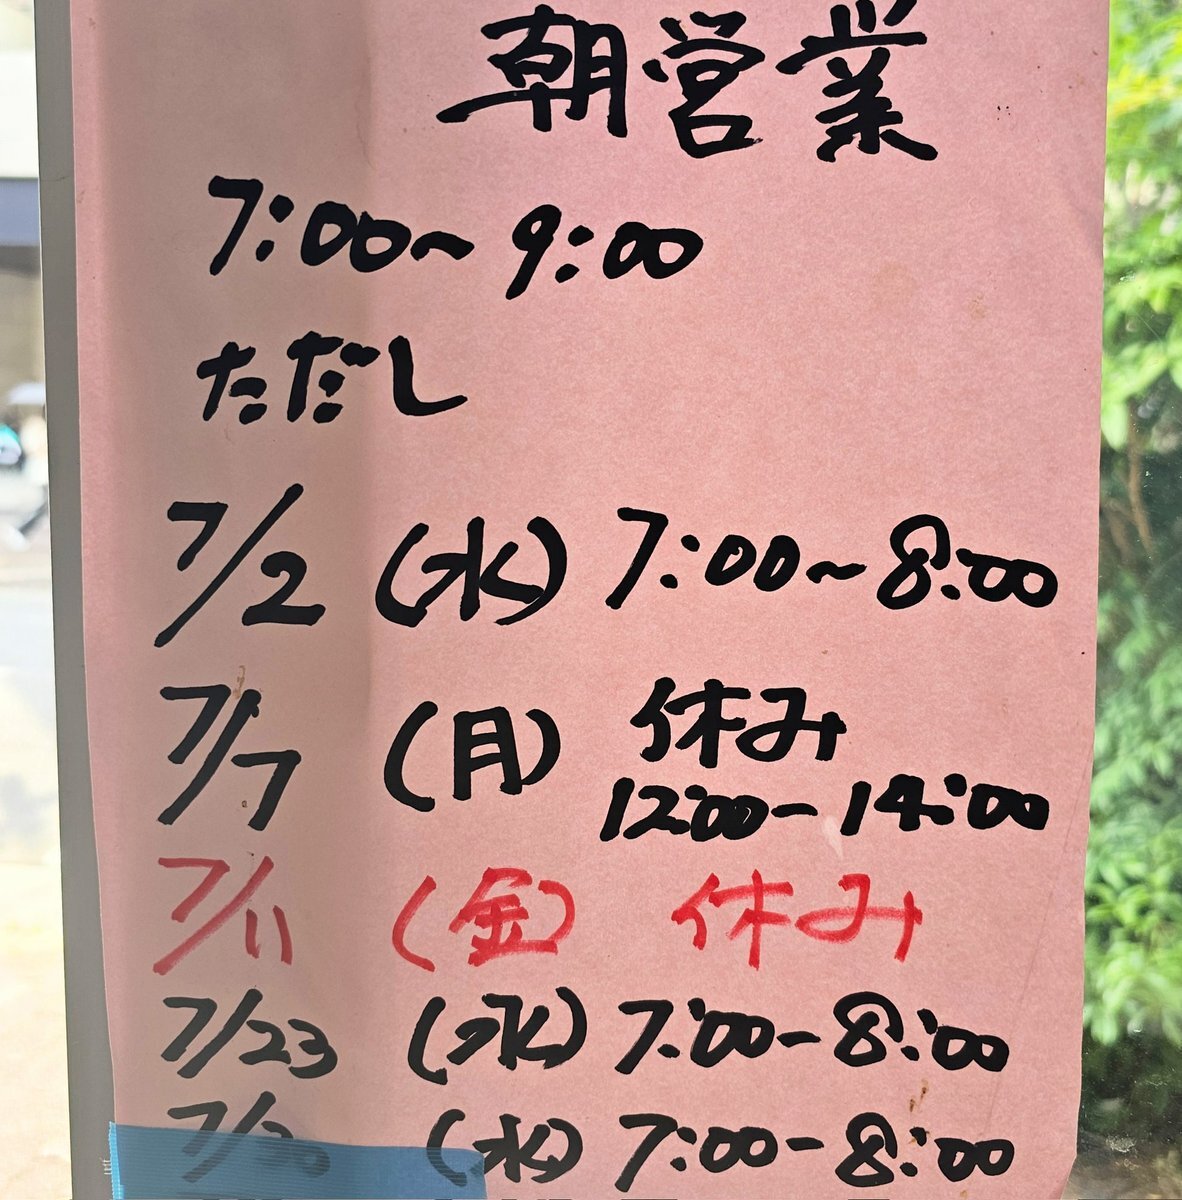 朝営業
7:00〜9:00
ただし
7/2 (水) 7:00〜8:00
7/7 (月) 休み
12:00-14:00
7/11 (金) 休み
7/23 (水) 7:00-8:00
7/30 (水) 7:00-8:00